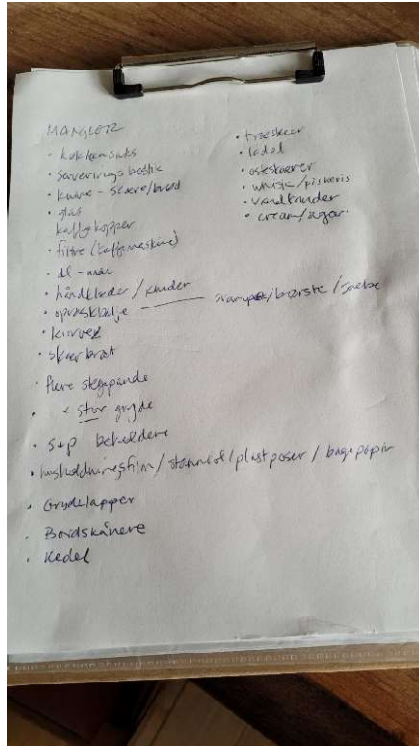 MANGLER
· serverings bestik
· knive - skære/brød
· glas
kaffekopper
· filtre (kaffemaskine)
· dl-mål
· håndklæder / klude
· opvaskebalje — svampe/børste/sæbe
· kurve
· skærebræt
· flere stegepande
· + stor gryde
· s+p beholdere
· husholdningsfilm/stanniol/plastposer/bagepapir
· Grydelapper
· Bordskånere
· Kedel
· træskeer
· ladel
· osteskærer
· whisk/piskeris
· vandkander
· cream/sugar